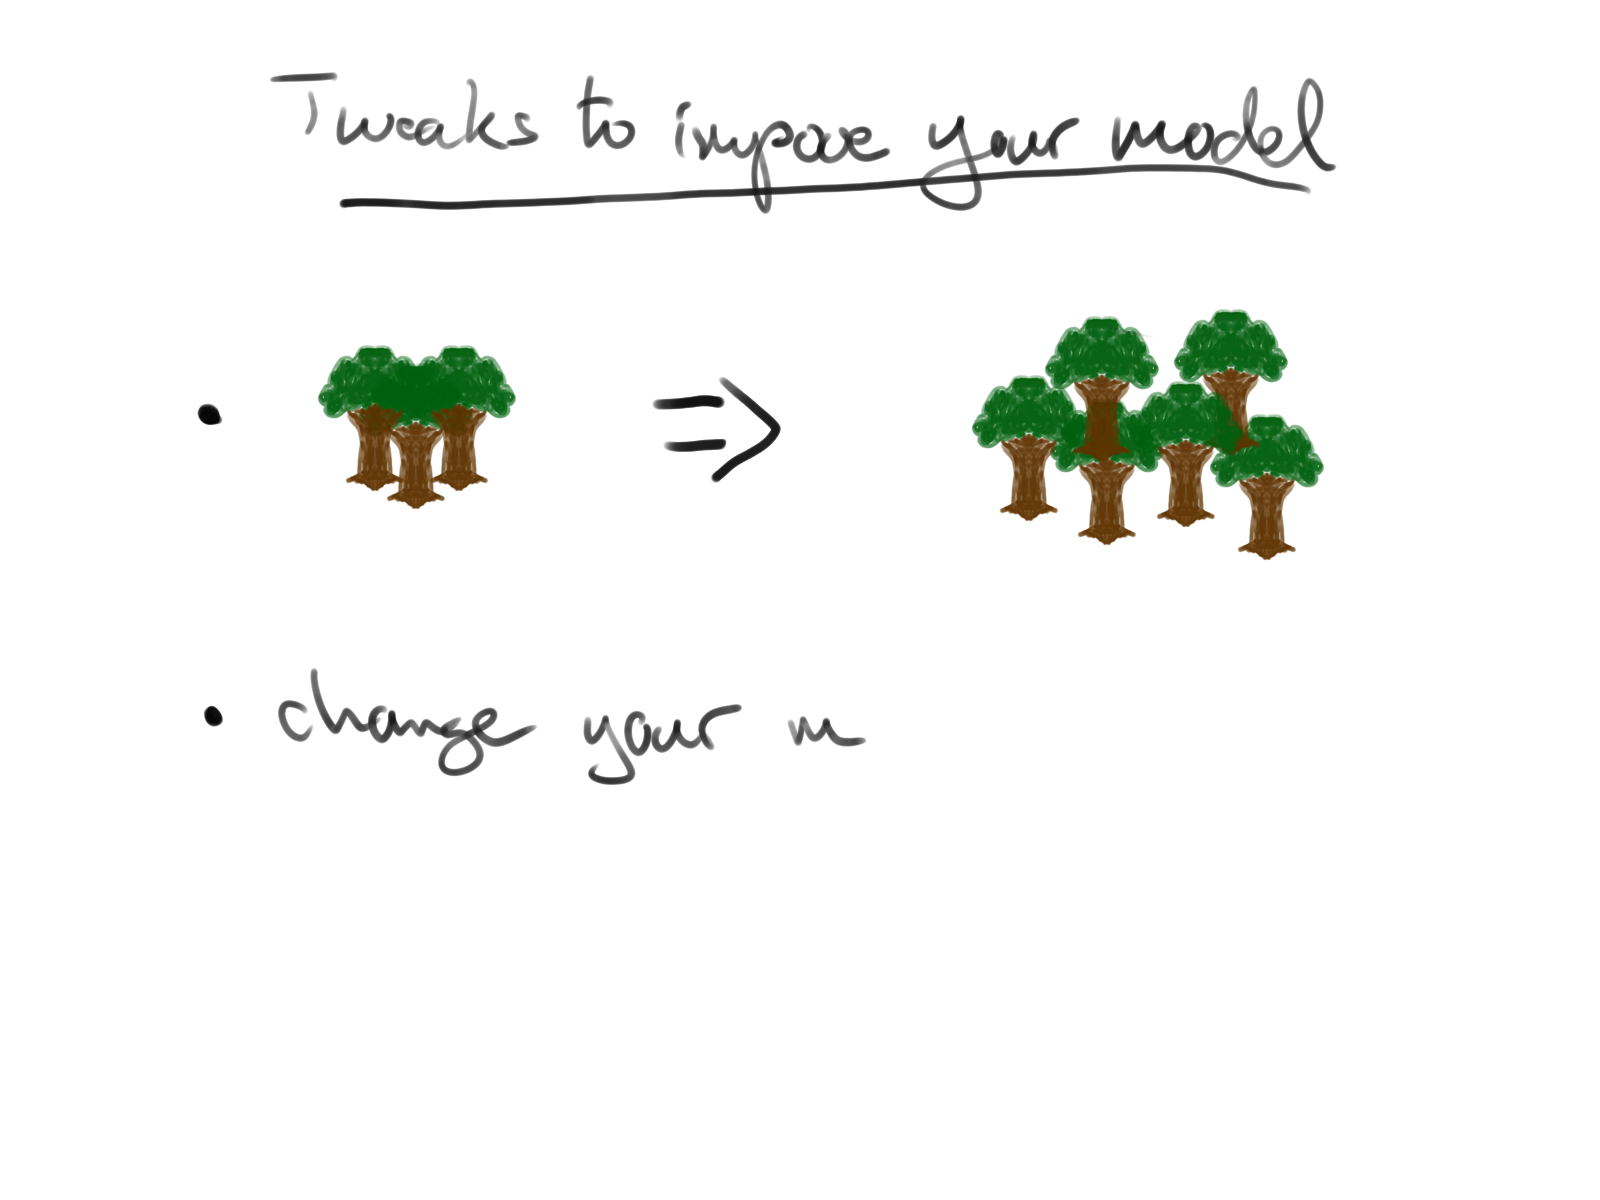 Tweaks to impove your model
• change your m